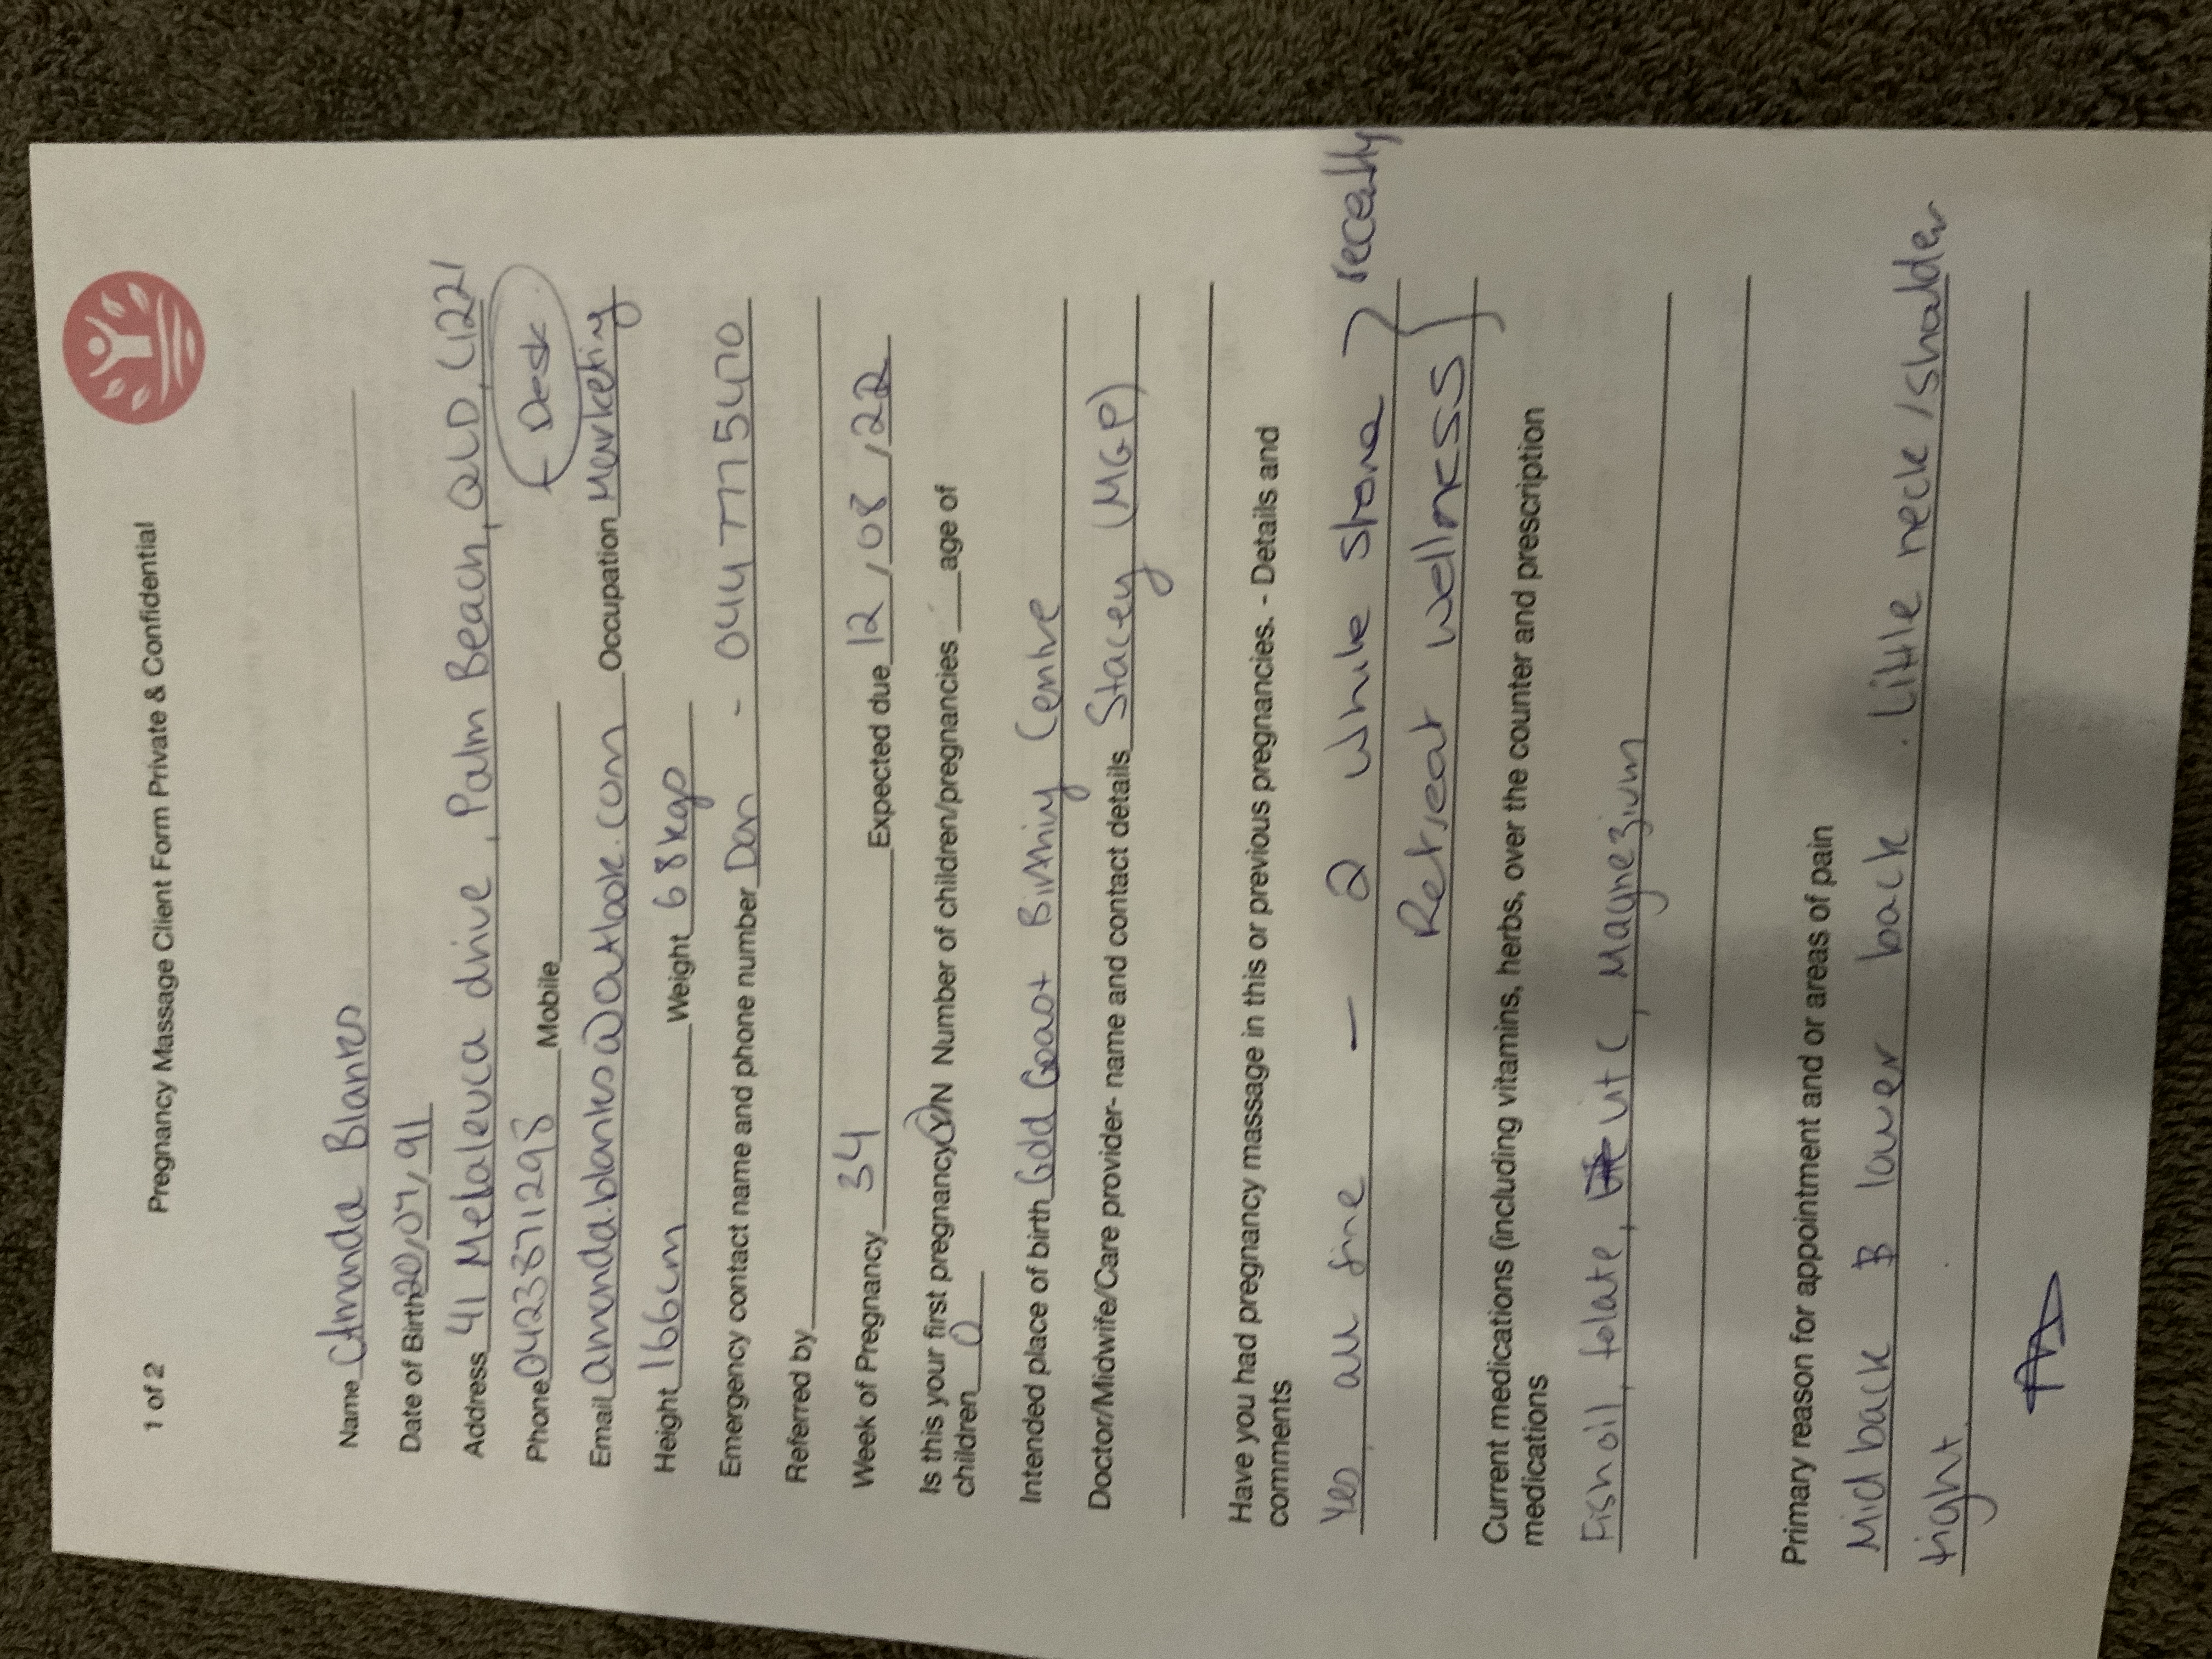 1 of 2 Pregnancy Massage Client Form Private & Confidential
Name Amanda Blanks
Date of Birth 20/07/91
Address 41 Melaleuca drive, Palm Beach, QLD, 4221
Phone 0423871298 Mobile
- Desk
Email amanda.blanks@outlook.com Occupation Marketing
Height 166cm Weight 68kgs
Emergency contact name and phone number Dan - 0447775470
Referred by
Week of Pregnancy 34 Expected due 12/08/22
Is this your first pregnancy Y/N Number of children/pregnancies age of
children 0
Intended place of birth Gold Coast Birthing Centre
Doctor/Midwife/Care provider- name and contact details Stacey (MGP)
Have you had pregnancy massage in this or previous pregnancies. - Details and
comments
Yes all fine - 2 while recently
Retreat wellness
Current medications (including vitamins, herbs, over the counter and prescription
medications
Fish oil, folate, vit C, Magnezium
Primary reason for appointment and or areas of pain
Mid back lower back. Little neck/sholder
tight.